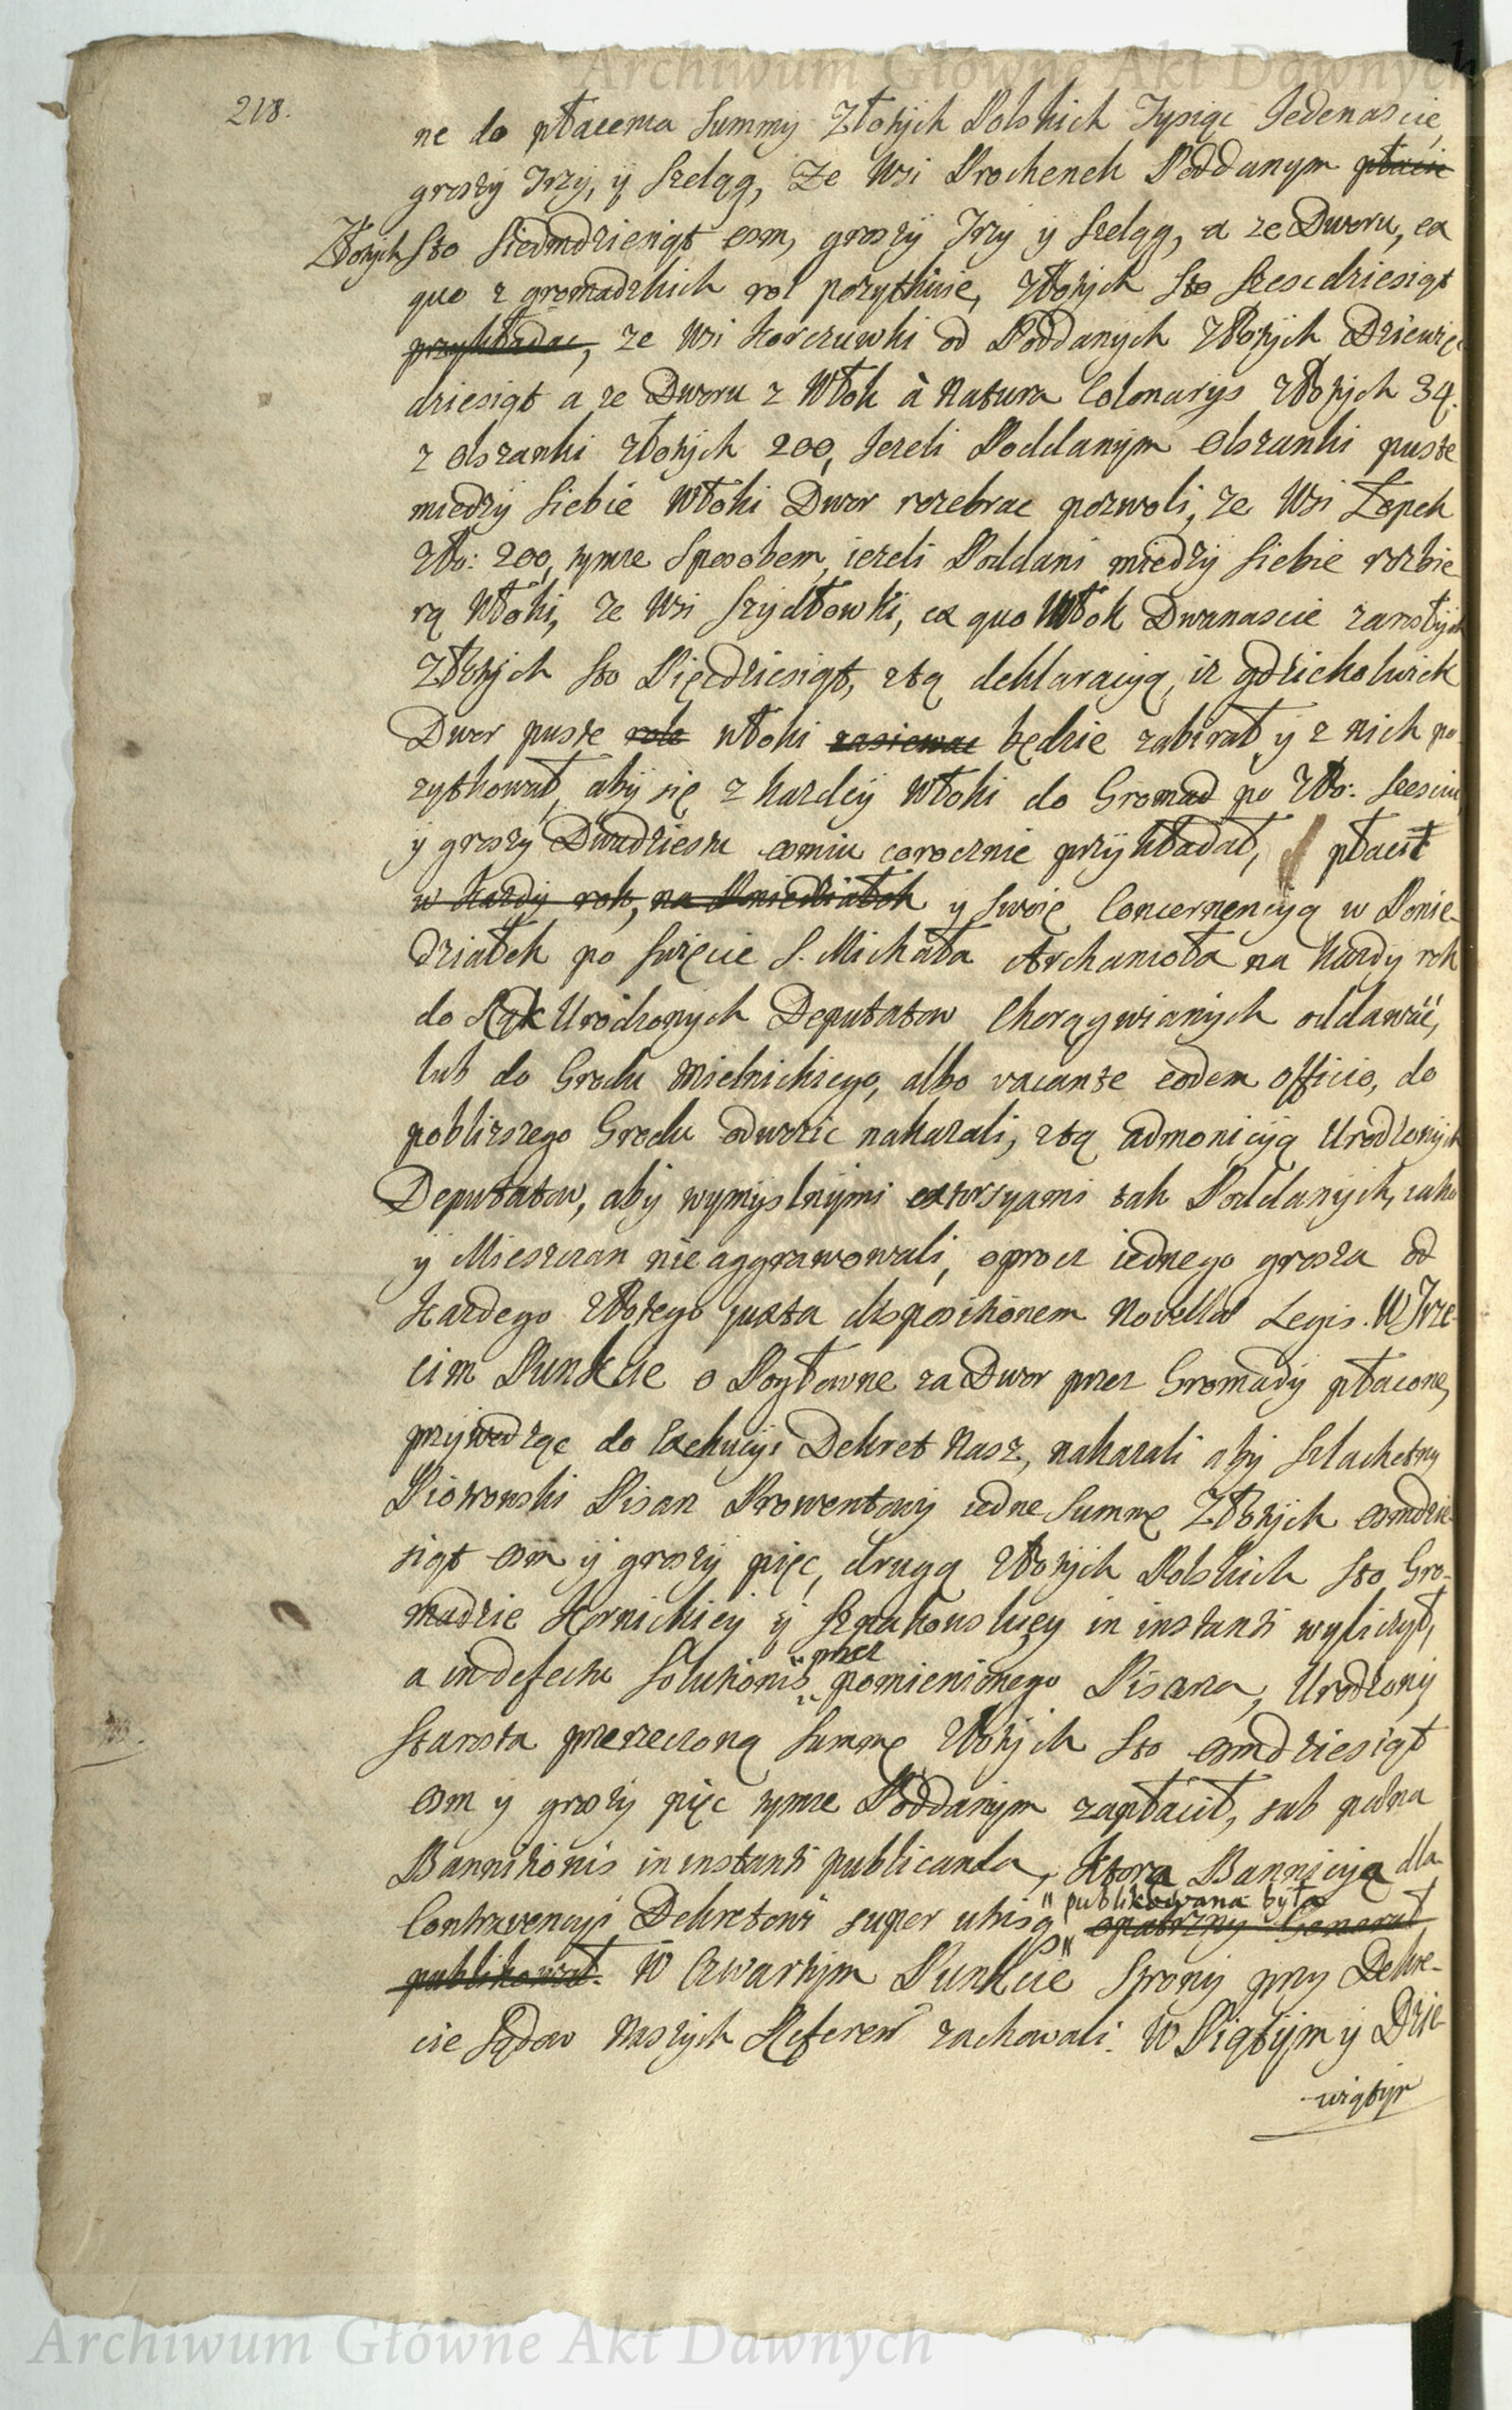 Archiwum Główne Akt Dawnych
218.
ne do płacenia Summy Złotych Polskich Tysiąc Jedenascie,
groszy Trzy, y Szeląg, Ze Wsi Prochenek Poddanym płacic
Złotych Sto Siedmdziesiąt osm, groszy Trzy y Szeląg, a ze Dworu, ex
quo z gromadzkich rol pozytkuie, Złotych Sto Szescdziesiąt
przykładac, ze Wsi Korczuwki od Poddanych Złotych Dziewięc
dziesiąt a ze Dworu z Włok à Natura Colonarys Złotych 34.
z Olszanki złotych 200, Jezeli Poddanym Olszanki puste
miedzy siebie Włoki Dwor rozebrac pozwoli, ze Wsi Łepek
Zło: 200, tymze Sposobem, iezeli Poddani miedzy siebie rozbie
rą Włoki, Ze Wsi Szydłowki, ex quo Włok Dwanascie zarosłych
Złotych Sto Pięcdziesiąt, ztą deklaracyą, iz gdziekolwiek
Dwor puste role włoki zasiewac będzie zabirał y z nich po
zytkował, aby się z kazdey Włoki do Gromad po Zło: szesciu
y groszy Dwudziestu osmiu corocznie przykładał, y płacił
w kazdy rok, na Poniedziałek y Swoię Concernencyą w Ponie-
działek po Swięcie S. Michała Archanioła na kazdy rok
do Rąk Urodzonych Deputatow Chorągwianych oddawać,
lub do Grodu Mielnickiego, albo vacante eodem officio, do
pobliszego Grodu odwozic nakazali, ztą admonicyą Urodzonych
Deputatow, aby wymyslnymi extorsyami tak Poddanych, iako
y Mieszczan nie aggrawowali, oprocz iednego grosza od
kazdego Złotego juxta dispositionem Novellae Legis. W Trze-
cim Punkcie o Pogłowne za Dwor przez Gromady płacone,
przywodząc do Exekucyi Dekret Nasz, nakazali aby Szlachetny
Piotrowski Pisarz Prowentowy iedne Summę Złotych osmdzie-
siąt osm y groszy pięc, drugą Złotych Polskich Sto Gro-
madzie Kornickiey y Szpakowskiey in instanti wyliczył,
a in defectu Solutionis " przez " pomienionego Pisarza, Urodzony
Starosta przerzeczoną Summę Złotych Sto osmdziesiąt
osm y groszy pięc tymze Poddanym zapłacił, sub paena
Bannitionis in instanti publicanda, Ktora Bannicyą dla
Contravencyi Dekretowi super utisą " publikowana była opatrzny Generał
publikował. W Czwartym Punkcie Strony przy Dekre-
cie Sądow Naszych Referen zachowali. W Piątym y Dzie-
wiątym
Archiwum Główne Akt Dawnych